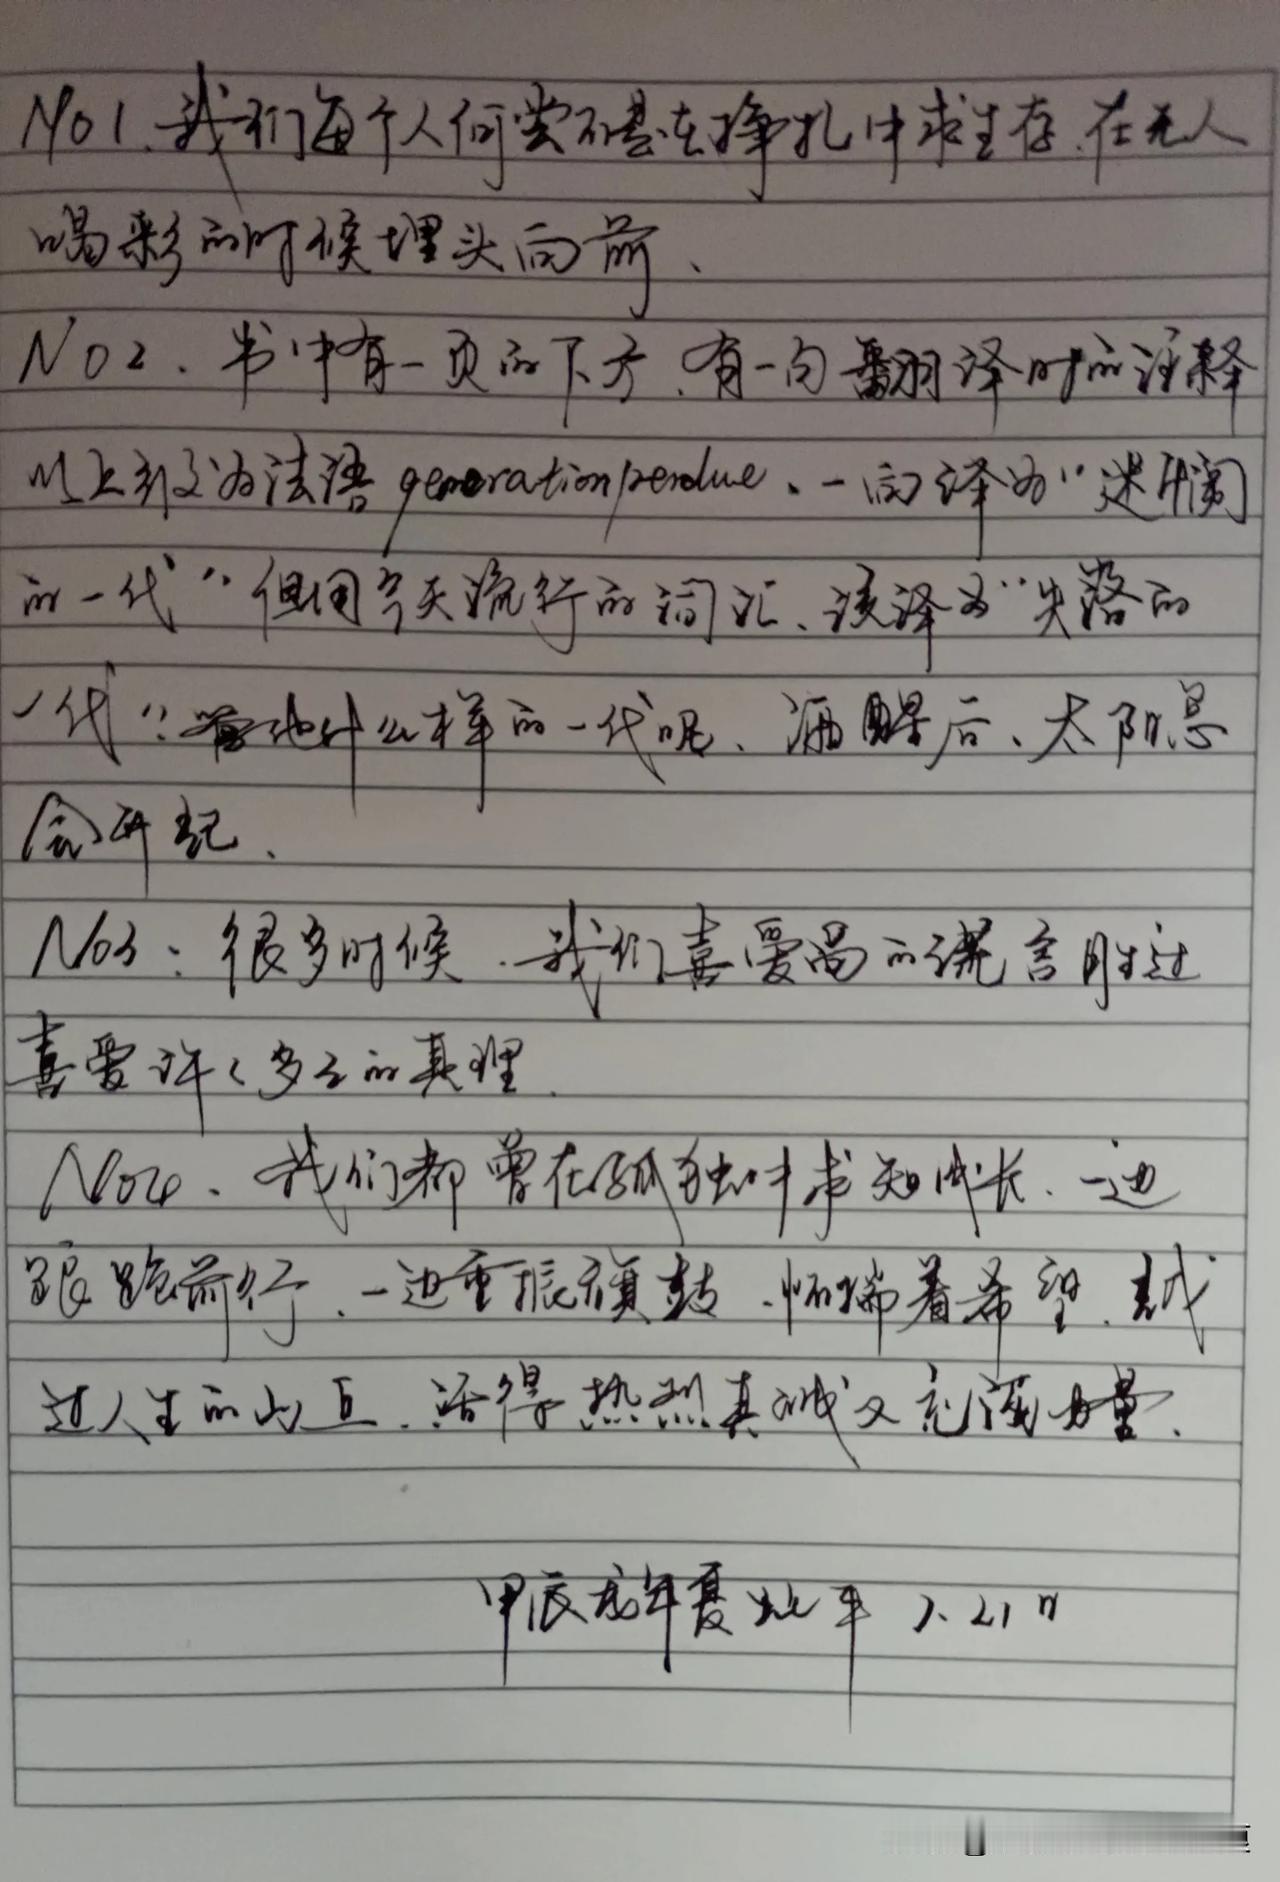 No1、我们每个人何尝不是在挣扎中求生存、在无人
喝彩的时候埋头向前、
No2、书中有一页的下方、有一句翻译时的注释
以上引文为法语generation perdue、一向译为“迷惘
的一代”但用今天流行的词汇、该译为“失落的
一代”管他什么样的一代呢、酒醒后、太阳总
会升起、
No3：很多时候、我们喜爱高的谎言胜过
喜爱许许多多的真理、
No4、我们都曾在孤独中求知成长、一边
踉跄前行、一边重振旗鼓、怀揣着希望、越
过人生的山丘、活得热烈真诚又充满力量、
甲辰龙年夏 平 7.21日